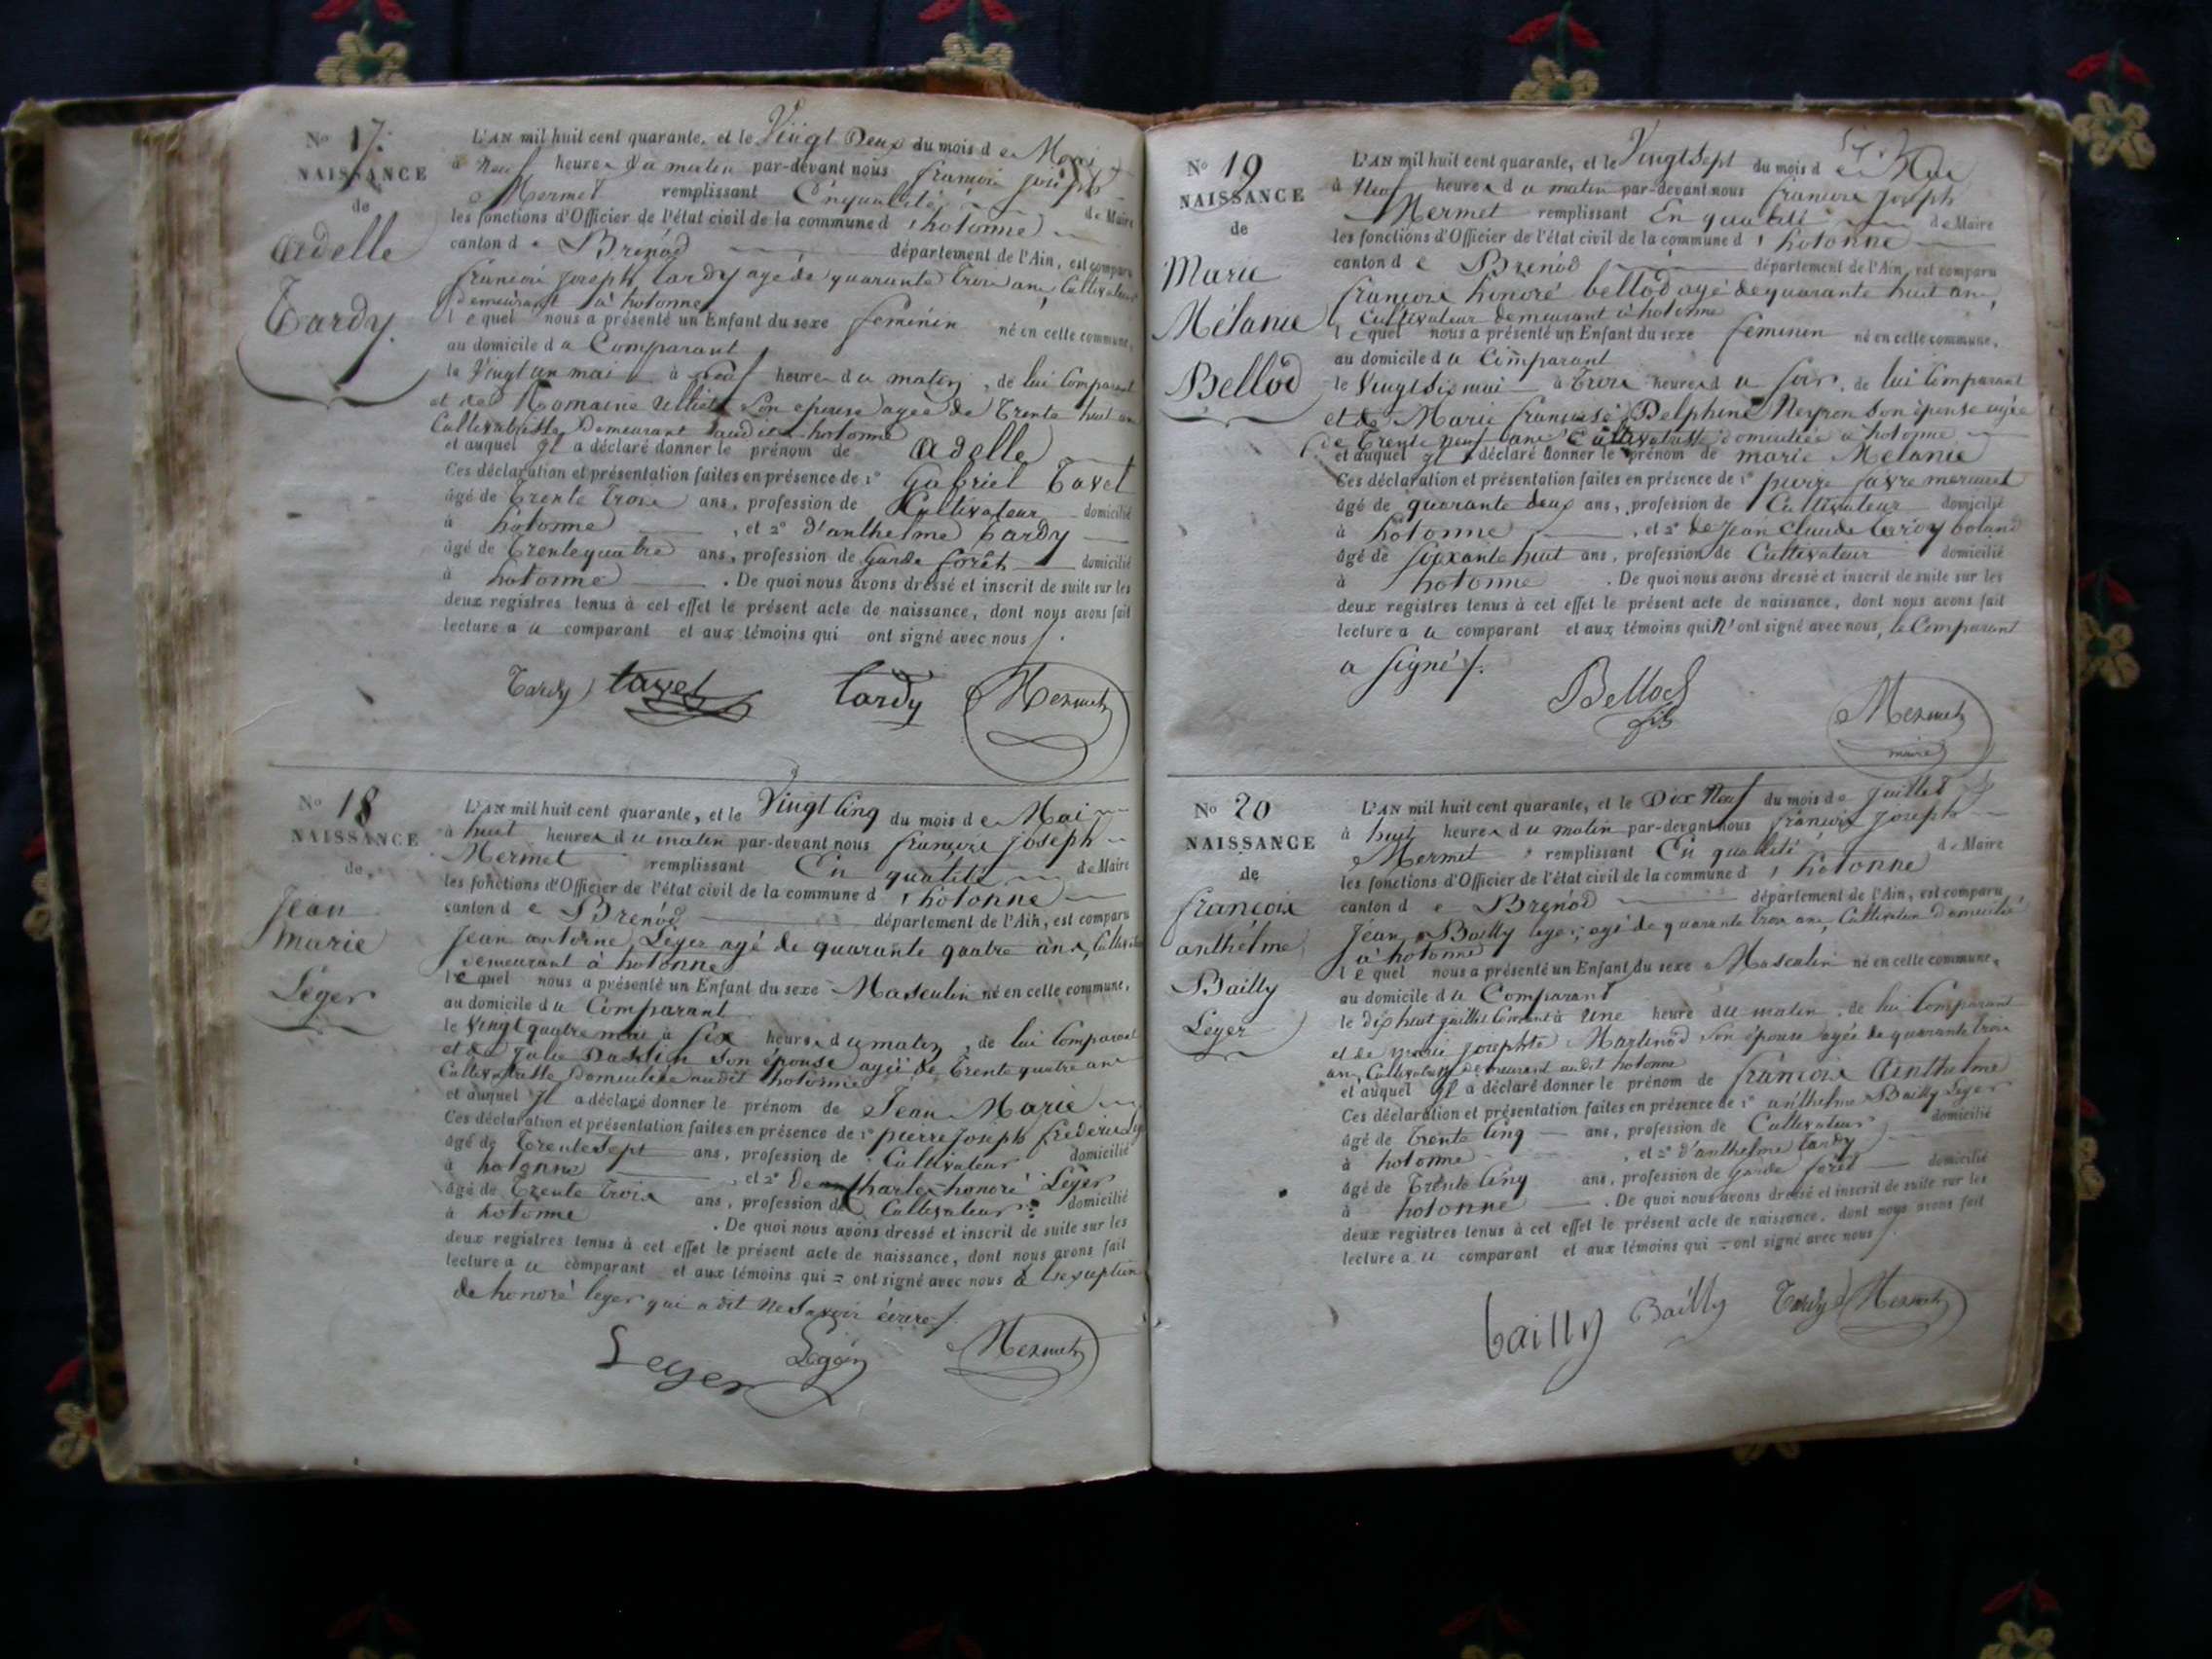 No 17.
NAISSANCE
de
Adelle
Tardy.
L'AN mil huit cent quarante, et le Vingt Deux du mois de Mai
à neuf heures du matin par-devant nous françois joseph
Mermet remplissant En qualité de Maire
les fonctions d'Officier de l'état civil de la commune d'hotonne
canton de Brenod département de l'Ain, est comparu
françois joseph tardy agé de quarante trois ans, Cultivateur
demeurant à hotonne
lequel nous a présenté un Enfant du sexe feminin né en cette commune,
au domicile du Comparant
le Vingt un mai à neuf heures du matin, de lui Comparant
et de Romaine son epouse agée de Trente huit ans
Cultivatrice Demeurant audit hotonne
et auquel il a déclaré donner le prénom de Adelle
Ces déclaration et présentation faites en présence de 1° Gabriel Tavel
âgé de Trente Trois ans, profession de Cultivateur domicilié
à hotonne, et 2° d'anthelme Tardy
âgé de Trente quatre ans, profession de Garde forêt domicilié
à hotonne. De quoi nous avons dressé et inscrit de suite sur les
deux registres tenus à cet effet le présent acte de naissance, dont nous avons fait
lecture au comparant et aux témoins qui ont signé avec nous
Tardy tavel tardy Mermet
No 18
NAISSANCE
de
Jean
marie
Léger
L'AN mil huit cent quarante, et le Vingt Cinq du mois de Mai
à huit heures du matin par-devant nous françois joseph
Mermet remplissant En qualité de Maire
les fonctions d'Officier de l'état civil de la commune d'hotonne
canton de Brenod département de l'Ain, est comparu
Jean antoine Léger agé de quarante quatre ans, Cultivateur
demeurant à hotonne
lequel nous a présenté un Enfant du sexe Masculin né en cette commune,
au domicile du Comparant
le Vingt quatre mai à six heures du matin, de lui Comparant
et de Julie son épouse agée de Trente quatre ans
Cultivatrice Domiciliée audit hotonne
et auquel il a déclaré donner le prénom de Jean Marie
Ces déclaration et présentation faites en présence de 1° pierre joseph frederic
âgé de Trente Sept ans, profession de Cultivateur domicilié
à hotonne, et 2° De Charles honoré Léger
âgé de Trente Trois ans, profession de Cultivateur domicilié
à hotonne. De quoi nous avons dressé et inscrit de suite sur les
deux registres tenus à cet effet le présent acte de naissance, dont nous avons fait
lecture au comparant et aux témoins qui = ont signé avec nous à lexception
de honoré leger qui a dit ne savoir écrire
Leger Léger Mermet
No 19
NAISSANCE
de
Marie
Mélanie
Bellod
L'AN mil huit cent quarante, et le Vingt Sept du mois de Mai
à Neuf heures du matin par-devant nous francois joseph
Mermet remplissant En qualité de Maire
les fonctions d'Officier de l'état civil de la commune d'hotonne
canton de Brenod département de l'Ain, est comparu
françois honoré bellod agé de quarante huit ans,
Cultivateur demeurant à hotonne
lequel nous a présenté un Enfant du sexe feminin né en cette commune,
au domicile du Comparant
le Vingt Six mai à Trois heures du soir, de lui Comparant
et de Marie françoise Delphine Neyron son épouse agée
de Trente neuf ans Cultivatrice domiciliée à hotonne
et auquel il a déclaré donner le prénom de marie Melanie
Ces déclaration et présentation faites en présence de 1° pierre favre mermet
âgé de quarante deux ans, profession de Cultivateur domicilié
à hotonne, et 2° de Jean Claude
âgé de soixante huit ans, profession de Cultivateur domicilié
à hotonne. De quoi nous avons dressé et inscrit de suite sur les
deux registres tenus à cet effet le présent acte de naissance, dont nous avons fait
lecture au comparant et aux témoins qui n'ont signé avec nous, le Comparant
a signé
Bellod fils Mermet
maire
No 20
NAISSANCE
de
françois
anthelme
Bailly
Leger
L'AN mil huit cent quarante, et le Dix Neuf du mois de juillet
à huit heures du matin par-devant nous francois joseph
Mermet remplissant En qualité de Maire
les fonctions d'Officier de l'état civil de la commune d'hotonne
canton de Brenod département de l'Ain, est comparu
Jean Bailly leger, agé de quarante Trois ans, Cultivateur Domicilié
à hotonne
lequel nous a présenté un Enfant du sexe Masculin né en cette commune,
au domicile du Comparant
le dix huit juillet Courant à Une heure du matin, de lui Comparant
et de marie josephte Martinod son épouse agée de quarante trois
ans, Cultivatrice demeurant audit hotonne
et auquel il a déclaré donner le prénom de francois Anthelme
Ces déclaration et présentation faites en présence de 1° anthelme Bailly Leger
âgé de Trente Cinq ans, profession de Cultivateur domicilié
à hotonne, et 2° d'anthelme tardy
âgé de Trente Cinq ans, profession de Garde forêt domicilié
à hotonne. De quoi nous avons dressé et inscrit de suite sur les
deux registres tenus à cet effet le présent acte de naissance, dont nous avons fait
lecture au comparant et aux témoins qui = ont signé avec nous
bailly Bailly Tardy Mermet